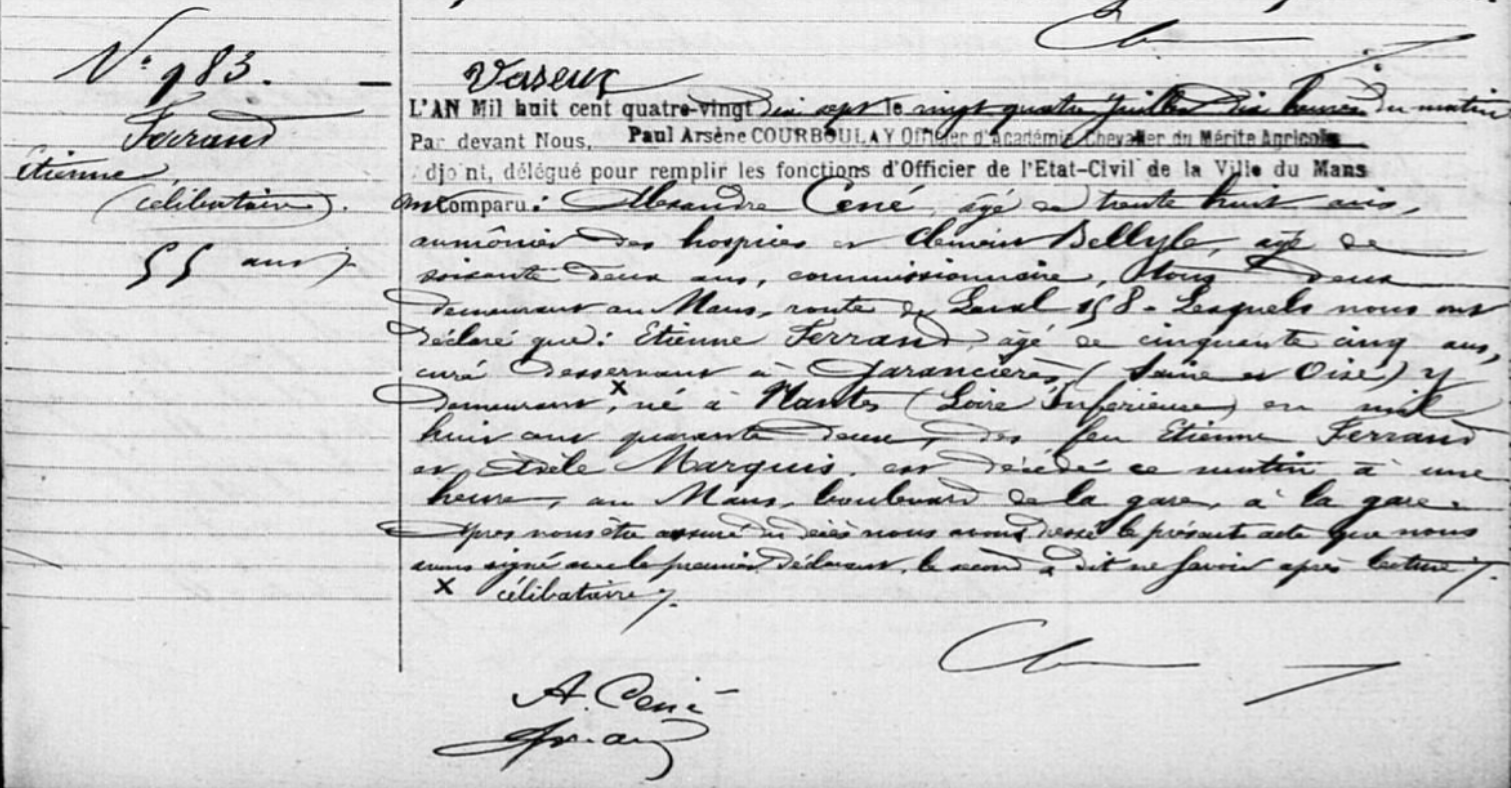 N° 983.
Ferrand
Etienne,
(célibataire).
55 ans
Vaseux
L'AN Mil huit cent quatre-vingt dix sept le vingt quatre juillet dix heures du matin
Par devant Nous, Paul Arsène COURBOULAY Officier d'Académie, Chevalier du Mérite Agricole
Adjoint, délégué pour remplir les fonctions d'Officier de l'Etat-Civil de la Ville du Mans
ont Comparu : Alexandre Cené, âgé de trente huit ans,
aumônier des hospices et Clément Bellyle, âgé de
soixante deux ans, commissionnaire, tous deux
demeurant au Mans, route de Laval 158. Lesquels nous ont
déclaré que : Etienne Ferrand, âgé de cinquante cinq ans,
curé desservant à Garancières (Seine et Oise) y
demeurant, x né à Nantes (Loire Inférieure) en mil
huit cent quarante deux, des feu Etienne Ferrand
et Adèle Marquis. est décédé ce matin à une
heure, au Mans, boulevard de la gare, à la gare.
Après nous être assuré du décès nous avons dressé le présent acte que nous
avons signé avec le premier déclarant, le second a dit ne savoir après lecture /.
x célibataire /.
A. Cené